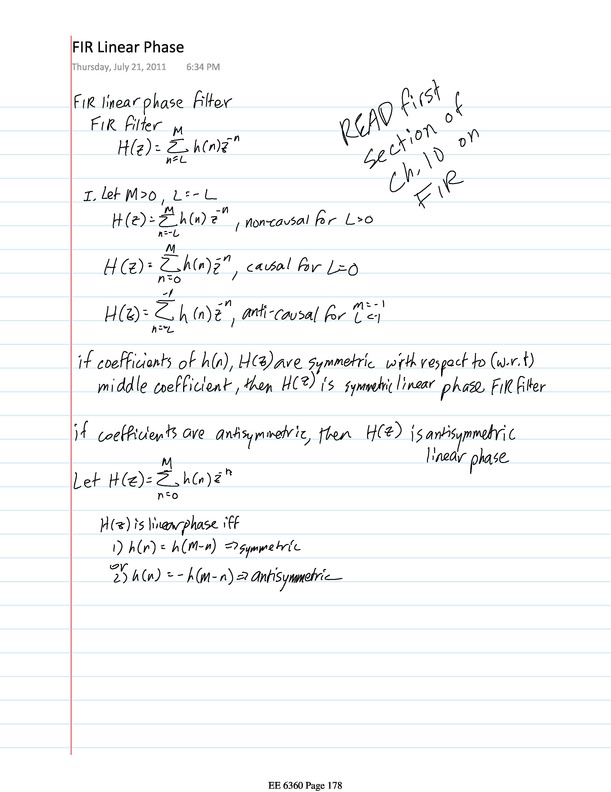 FIR Linear Phase
Thursday, July 21, 2011 6:34 PM
FIR linear phase filter
FIR filter
H(z) = Σ_{n=L}^{M} h(n) z^{-n}
READ first
section of
Ch. 10 on
FIR
I. Let M>0, L=-L
H(z) = Σ_{n=-L}^{M} h(n) z^{-n}, non-causal for L>0
H(z) = Σ_{n=0}^{M} h(n) z^{-n}, causal for L=0
H(z) = Σ_{n=-L}^{-1} h(n) z^{-n}, anti-causal for M=-1 L<-1
if coefficients of h(n), H(z) are symmetric with respect to (w.r.t)
middle coefficient, then H(z) is symmetric linear phase FIR filter
if coefficients are antisymmetric, then H(z) is antisymmetric
linear phase
Let H(z) = Σ_{n=0}^{M} h(n) z^{-n}
H(z) is linear phase iff
1) h(n) = h(M-n) ⇒ symmetric
or
2) h(n) = -h(M-n) ⇒ antisymmetric
EE 6360 Page 178